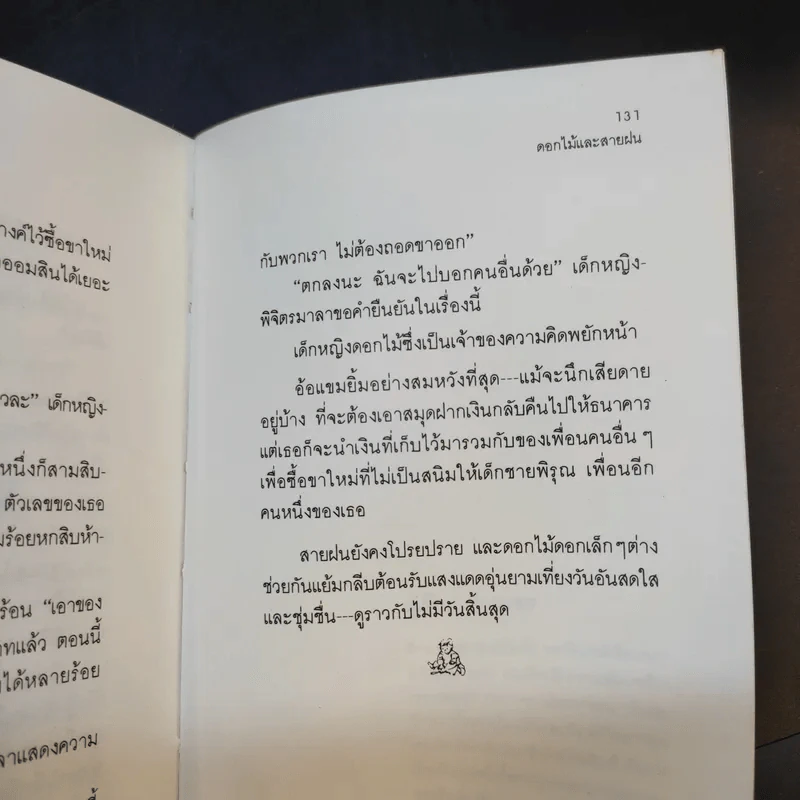 างค์ไว้ซื้อขาใหม่
ออมสินได้เยอะ
วละ” เด็กหญิง-
หนึ่งก็สามสิบ-
ตัวเลขของเธอ
มร้อยหกสิบห้า-
ร้อน “เอาของ
าทแล้ว ตอนนี้
ได้หลายร้อย
าแสดงความ
131
ดอกไม้และสายฝน
กับพวกเรา ไม่ต้องถอดขาออก”
“ตกลงนะ ฉันจะไปบอกคนอื่นด้วย” เด็กหญิง-
พิจิตรมาลาขอคำยืนยันในเรื่องนี้
เด็กหญิงดอกไม้ซึ่งเป็นเจ้าของความคิดพยักหน้า
อ้อแขมยิ้มอย่างสมหวังที่สุด---แม้จะนึกเสียดาย
อยู่บ้าง ที่จะต้องเอาสมุดฝากเงินกลับคืนไปให้ธนาคาร
แต่เธอก็จะนำเงินที่เก็บไว้มารวมกับของเพื่อนคนอื่น ๆ
เพื่อซื้อขาใหม่ที่ไม่เป็นสนิมให้เด็กชายพิรุณ เพื่อนอีก
คนหนึ่งของเธอ
สายฝนยังคงโปรยปราย และดอกไม้ดอกเล็ก ๆ ต่าง
ช่วยกันแย้มกลีบต้อนรับแสงแดดอุ่นยามเที่ยงวันอันสดใส
และชุ่มชื่น---ดูราวกับไม่มีวันสิ้นสุด